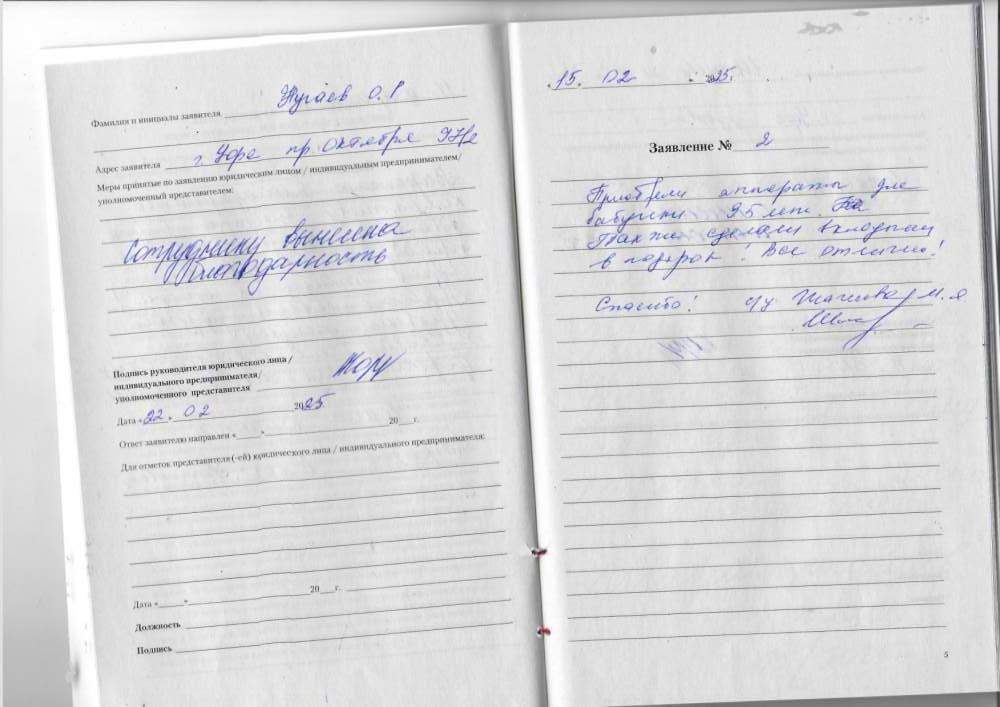 Фамилия и инициалы заявителя Нугаев О.Г
Адрес заявителя г. Уфа пр. Октября
Меры принятые по заявлению юридическим лицом / индивидуальным предпринимателем/
уполномоченный представителем:
Сотруднику вынесена
благодарность
Подпись руководителя юридического лица /
индивидуального предпринимателя/
уполномоченного представителя
Дата «22» 02 2025
Ответ заявителю направлен «____»____ 20___г.
Для отметок представителя (-ей) юридического лица / индивидуального предпринимателя:
Дата «____»____ 20___г.
Должность
Подпись
15. 02 2025.
Заявление № 2
Приобрели аппараты для
бабушки 95 лет.
Также сделали вкладыши
в подарок! Все отлично!
Спасибо! М.Я
5